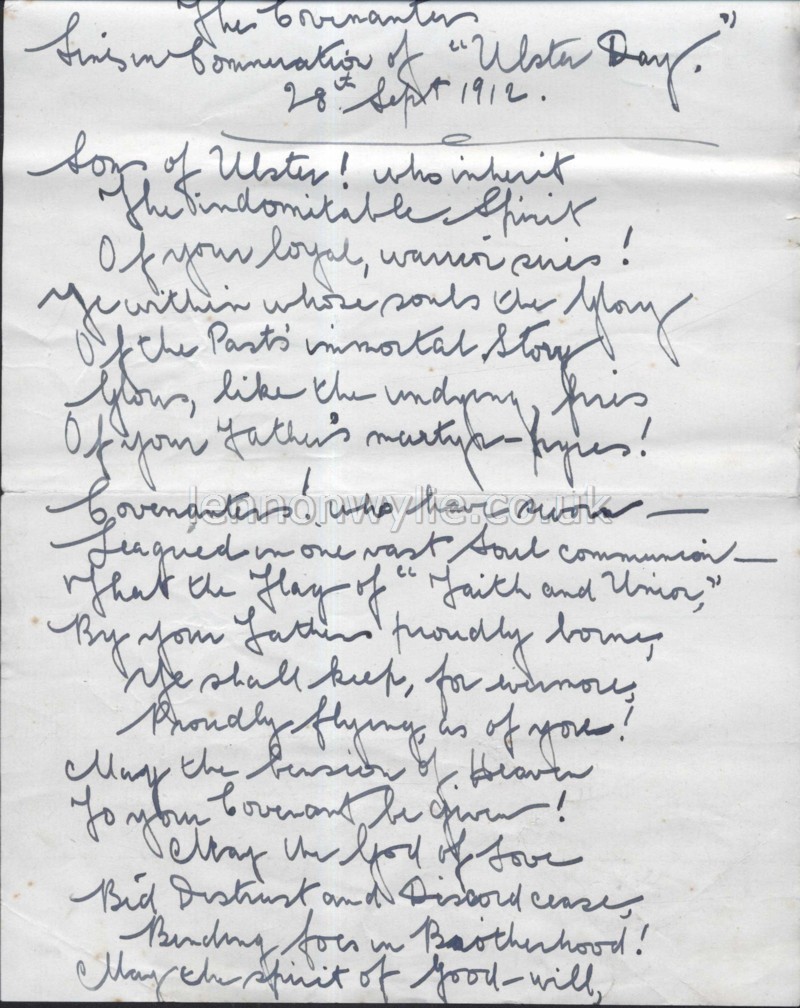 The Covenanters
Lines in Commeration of "Ulster Day."
28th Sept 1912.
Sons of Ulster! who inherit
The indomitable Spirit
Of your loyal, warrior sires!
Ye within whose souls the Glory
Of the Past's immortal Story
Glows, like the undying fires
Of your Father's martyr-pyres!
Covenanters! who have sworn —
Leagued in one vast Soul communion —
That the Flag of "Faith and Union,"
By your Fathers proudly borne,
Ye shall keep, for evermore,
Proudly flying, as of yore!
lennonwylie.co.uk
May the benison of Heaven
To your Covenant be given!
May the God of Love
Bid Distrust and Discord cease,
Binding foes in Brotherhood!
May the spirit of Good-will,